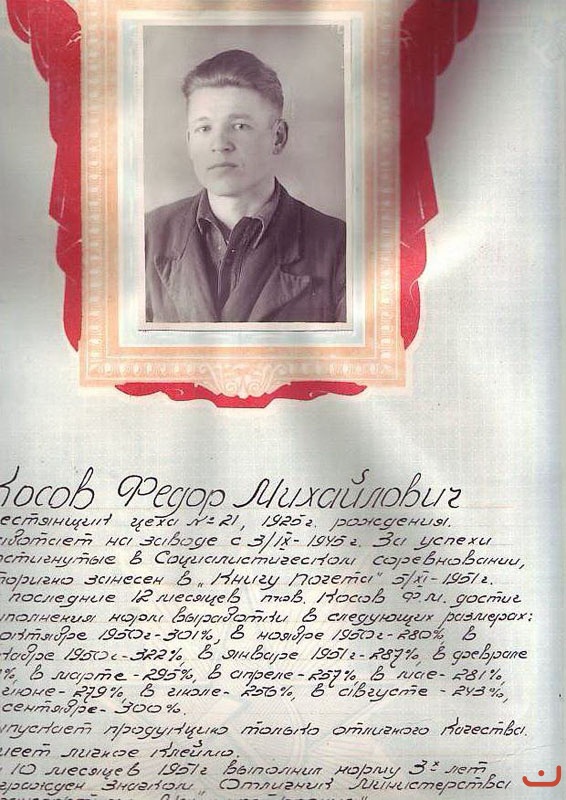 Косов Федор Михайлович
естянщик цеха № 21, 1925 г. рождения.
аботает на заводе с 3/IX - 1945 г. За успехи
остигнутые в Социалистическом соревновании,
торично занесен в „Книгу Почета" 5/XI - 1951 г.
последние 12 месяцев тов. Косов Ф.М. достиг
полнения норм выработки в следующих размерах:
октябре 1950 г - 301%, в ноябре 1950 г - 280%, в
кабре 1950 г - 322%, в январе 1951 г - 287%, в феврале
%, в марте - 295%, в апреле - 257%, в мае - 281%,
июне - 279%, в июле - 256%, в августе - 243%,
сентябре - 300%.
ыпускает продукцию только отличного качества.
меет личное клеймо.
10 месяцев 1951 г выполнил норму 3х лет
гражден значком „Отличник Министерства